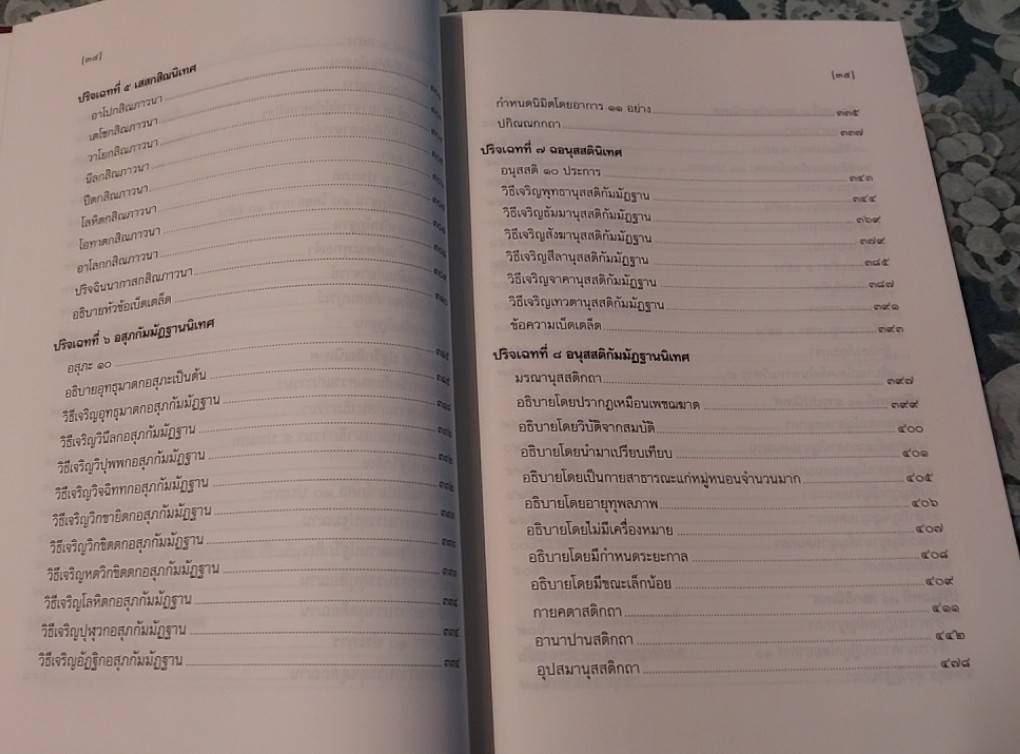 [๓๔]
ปริจเฉทที่ ๕ เสสกสิณนิเทศ
อาโปกสิณภาวนา
เตโชกสิณภาวนา
วาโยกสิณภาวนา
นีลกสิณภาวนา
ปีตกสิณภาวนา
โลหิตกสิณภาวนา
โอทาตกสิณภาวนา
อาโลกกสิณภาวนา
ปริจฉินนากาสกสิณภาวนา
อธิบายหัวข้อเบ็ดเตล็ด
ปริจเฉทที่ ๖ อสุภกัมมัฏฐานนิเทศ
อสุภะ ๑๐
อธิบายอุทธุมาตกอสุภะเป็นต้น
วิธีเจริญอุทธุมาตกอสุภกัมมัฏฐาน
วิธีเจริญวินีลกอสุภกัมมัฏฐาน
วิธีเจริญวิปุพพกอสุภกัมมัฏฐาน
วิธีเจริญวิจฉิททกอสุภกัมมัฏฐาน
วิธีเจริญวิกขายิตกอสุภกัมมัฏฐาน
วิธีเจริญวิกขิตตกอสุภกัมมัฏฐาน
วิธีเจริญหตวิกขิตตกอสุภกัมมัฏฐาน
วิธีเจริญโลหิตกอสุภกัมมัฏฐาน
วิธีเจริญปุฬุวกอสุภกัมมัฏฐาน
วิธีเจริญอัฏฐิกอสุภกัมมัฏฐาน
[๓๕]
กำหนดนิมิตโดยอาการ ๑๑ อย่าง ๓๓๕
ปกิณณกกถา ๓๓๗
ปริจเฉทที่ ๗ ฉอนุสสตินิเทศ
อนุสสติ ๑๐ ประการ ๓๔๓
วิธีเจริญพุทธานุสสติกัมมัฏฐาน ๓๔๔
วิธีเจริญธัมมานุสสติกัมมัฏฐาน ๓๖๙
วิธีเจริญสังฆานุสสติกัมมัฏฐาน ๓๗๙
วิธีเจริญสีลานุสสติกัมมัฏฐาน ๓๘๕
วิธีเจริญจาคานุสสติกัมมัฏฐาน ๓๘๗
วิธีเจริญเทวตานุสสติกัมมัฏฐาน ๓๙๑
ข้อความเบ็ดเตล็ด ๓๙๓
ปริจเฉทที่ ๘ อนุสสติกัมมัฏฐานนิเทศ
มรณานุสสติกถา ๓๙๗
อธิบายโดยปรากฏเหมือนเพชฌฆาต ๓๙๙
อธิบายโดยวิบัติจากสมบัติ ๔๐๐
อธิบายโดยนำมาเปรียบเทียบ ๔๐๑
อธิบายโดยเป็นกายสาธารณะแก่หมู่หนอนจำนวนมาก ๔๐๕
อธิบายโดยอายุทุพลภาพ ๔๐๖
อธิบายโดยไม่มีเครื่องหมาย ๔๐๗
อธิบายโดยมีกำหนดระยะกาล ๔๐๘
อธิบายโดยมีขณะเล็กน้อย ๔๐๙
กายคตาสติกถา ๔๑๑
อานาปานสติกถา ๔๔๒
อุปสมานุสสติกถา ๔๗๘